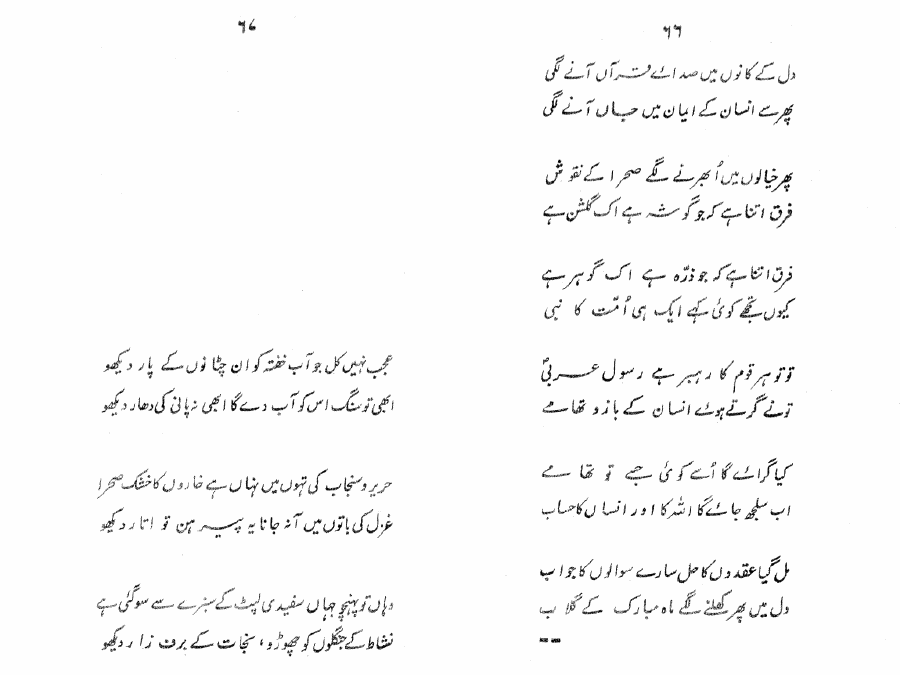 ۶۶
دل کے کانوں میں صدائے قرآں آنے لگی
پھر سے انسان کے ایمان میں جاں آنے لگی
پھر خیالوں میں اُبھرنے لگے صحرا کے نقوش
فرق اتنا ہے کہ جو گوشہ ہے اک گلشن ہے
فرق اتنا ہے کہ جو ذرّہ ہے اک گوہر ہے
کیوں تجھے کوئی کہے ایک ہی اُمّت کا نبی
تو تو ہر قوم کا رہبر ہے رسول عربیؐ
تونے گرتے ہوئے انسان کے بازو تھامے
کیا گرائے گا اُسے کوئی جسے تو تھامے
اب سلجھ جائے گا اللہ کا اور انساں کا حساب
مل گیا عقدوں کا حل سارے سوالوں کا جواب
دل میں پھر کھلنے لگے ماہ مبارک کے گلاب
۶۷
عجب نہیں کل جو آب خفتہ کو ان چٹانوں کے پار دیکھو
ابھی تو سنگ اس کو آب دے گا ابھی نہ پانی کی دھار دیکھو
حریر و سنجاب کی تہوں میں نہاں ہے خاروں کا خشک صحرا
غزل کی باتوں میں آ نہ جانا یہ پیرہن تو اتار دیکھو
وہاں تو پہنچو جہاں سفیدی لپٹ کے سبزے سے سو گئی ہے
نشاط کے جنگلوں کو چھوڑو، سنجات کے برف زار دیکھو